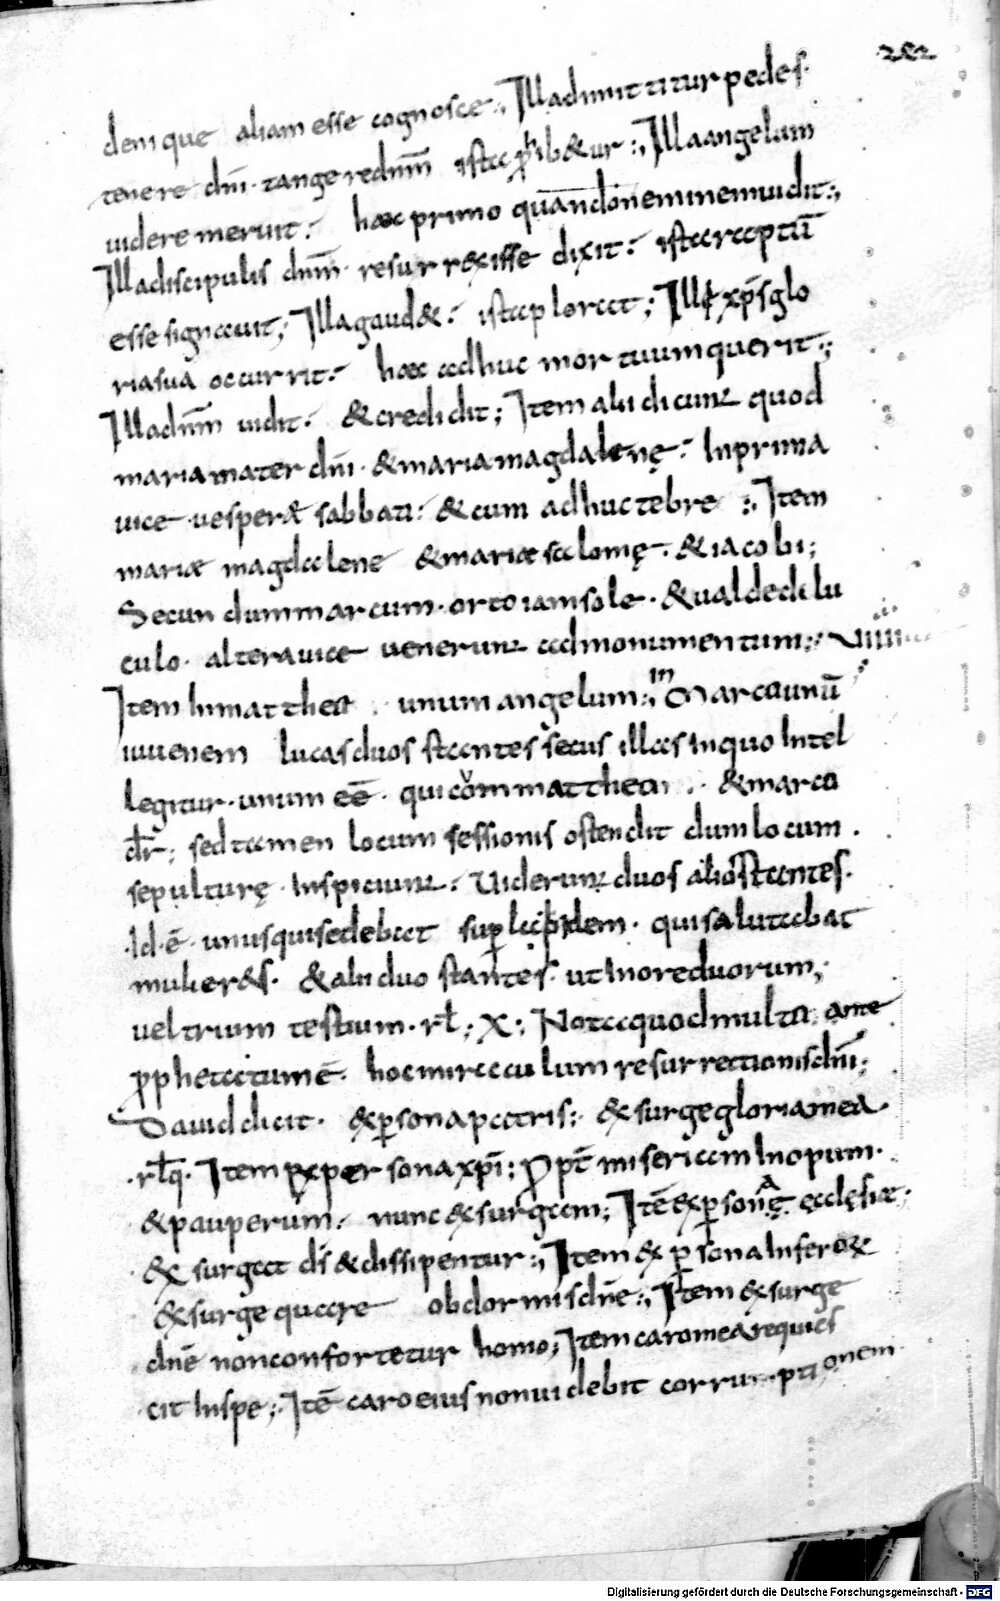 282
denique aliam esse cognosce:, Illa dimittitur pedes·
tenere dni· tangere dnm̅ ista p̱hib&ur:, Illa angelum
uidere meruit: haec primo quando neminem uidit:,
Illa discipulis dnm̅ resurrexisse dixit: ista raptū
esse significauit; Illa gaud&: ista plorat; Illi xp̅s glo
ria sua occurrit: haec adhuc mortuum querit:;
Illa dnm̅ uidit: & credidit; Item alii dicunt quod
maria mater dni· & maria magdalenę: In prima
uice uespere sabbati: & cum adhuc tebre :, Item
mariae magdalene & mariae salomę· & iacobi;
Secundum marcum· orto iam sole· & ualde dilu
culo· altera uice uenerunt ad monumentum:,
Item In mattheo unum angelum:, In Marco unū
iuuenem lucas duos stantes secus illas In quo Intel
legitur· unum eē· qui cōm mattheum & marcū
dr̄; sed tamen locum sessionis ostendit dum locum·
sepulturę Inspiciunt: Uiderunt duos alios stantes·
·Id·ē· unus qui sedebat sup̱ lapidem· qui salutabat
mulieres· & alii duo stantes· ut In ore duorum,·
uel trium testium· rl̄; X; Nota quod multa ante
p̱phetatum ē· hoc miraculum resurrectionis dni;
Dauid dicit· ex p̱sona patris: exsurge gloria mea·
·rl̄q· Item ex persona xp̅i: Ppt̄ miseriam Inopum·
& pauperum: nunc exsurgam; Itē ex p̱sona ęcclęsiae;
exsurgat ds̄ & dissipentur:, Item ex p̱sona Inferorum
exsurge quare obdormis dn̄e:, Item exsurge
dn̄e non confortetur homo; Item caro mea requies
cit In spe;· Itē caro eius non uidebit corruptionem·
Digitalisierung gefördert durch die Deutsche Forschungsgemeinschaft - DFG